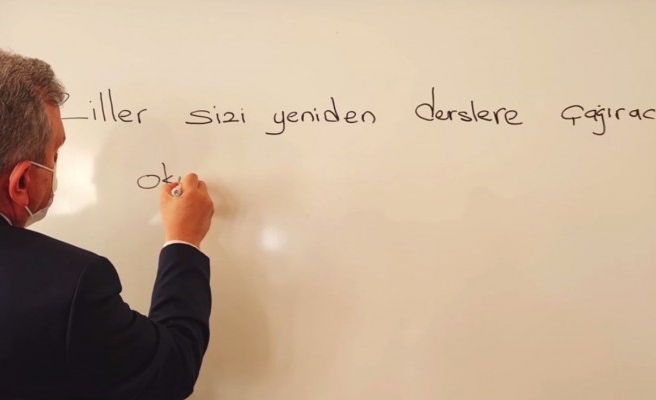 Ziller sizi yeniden derslere çağırac
ok